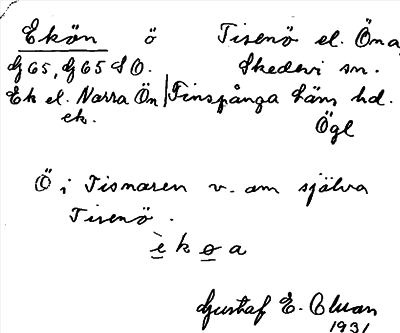 Ekön ö Tisenö el. Öna
Gj 65, Gj 65 SO. Skedevi sn.
Ek el. Norra Ön Finspånga läns hd.
ek. Ögl
Ö i Tisnaren v. om själva
Tisenö.
è k ø a
Gustaf E.
1931